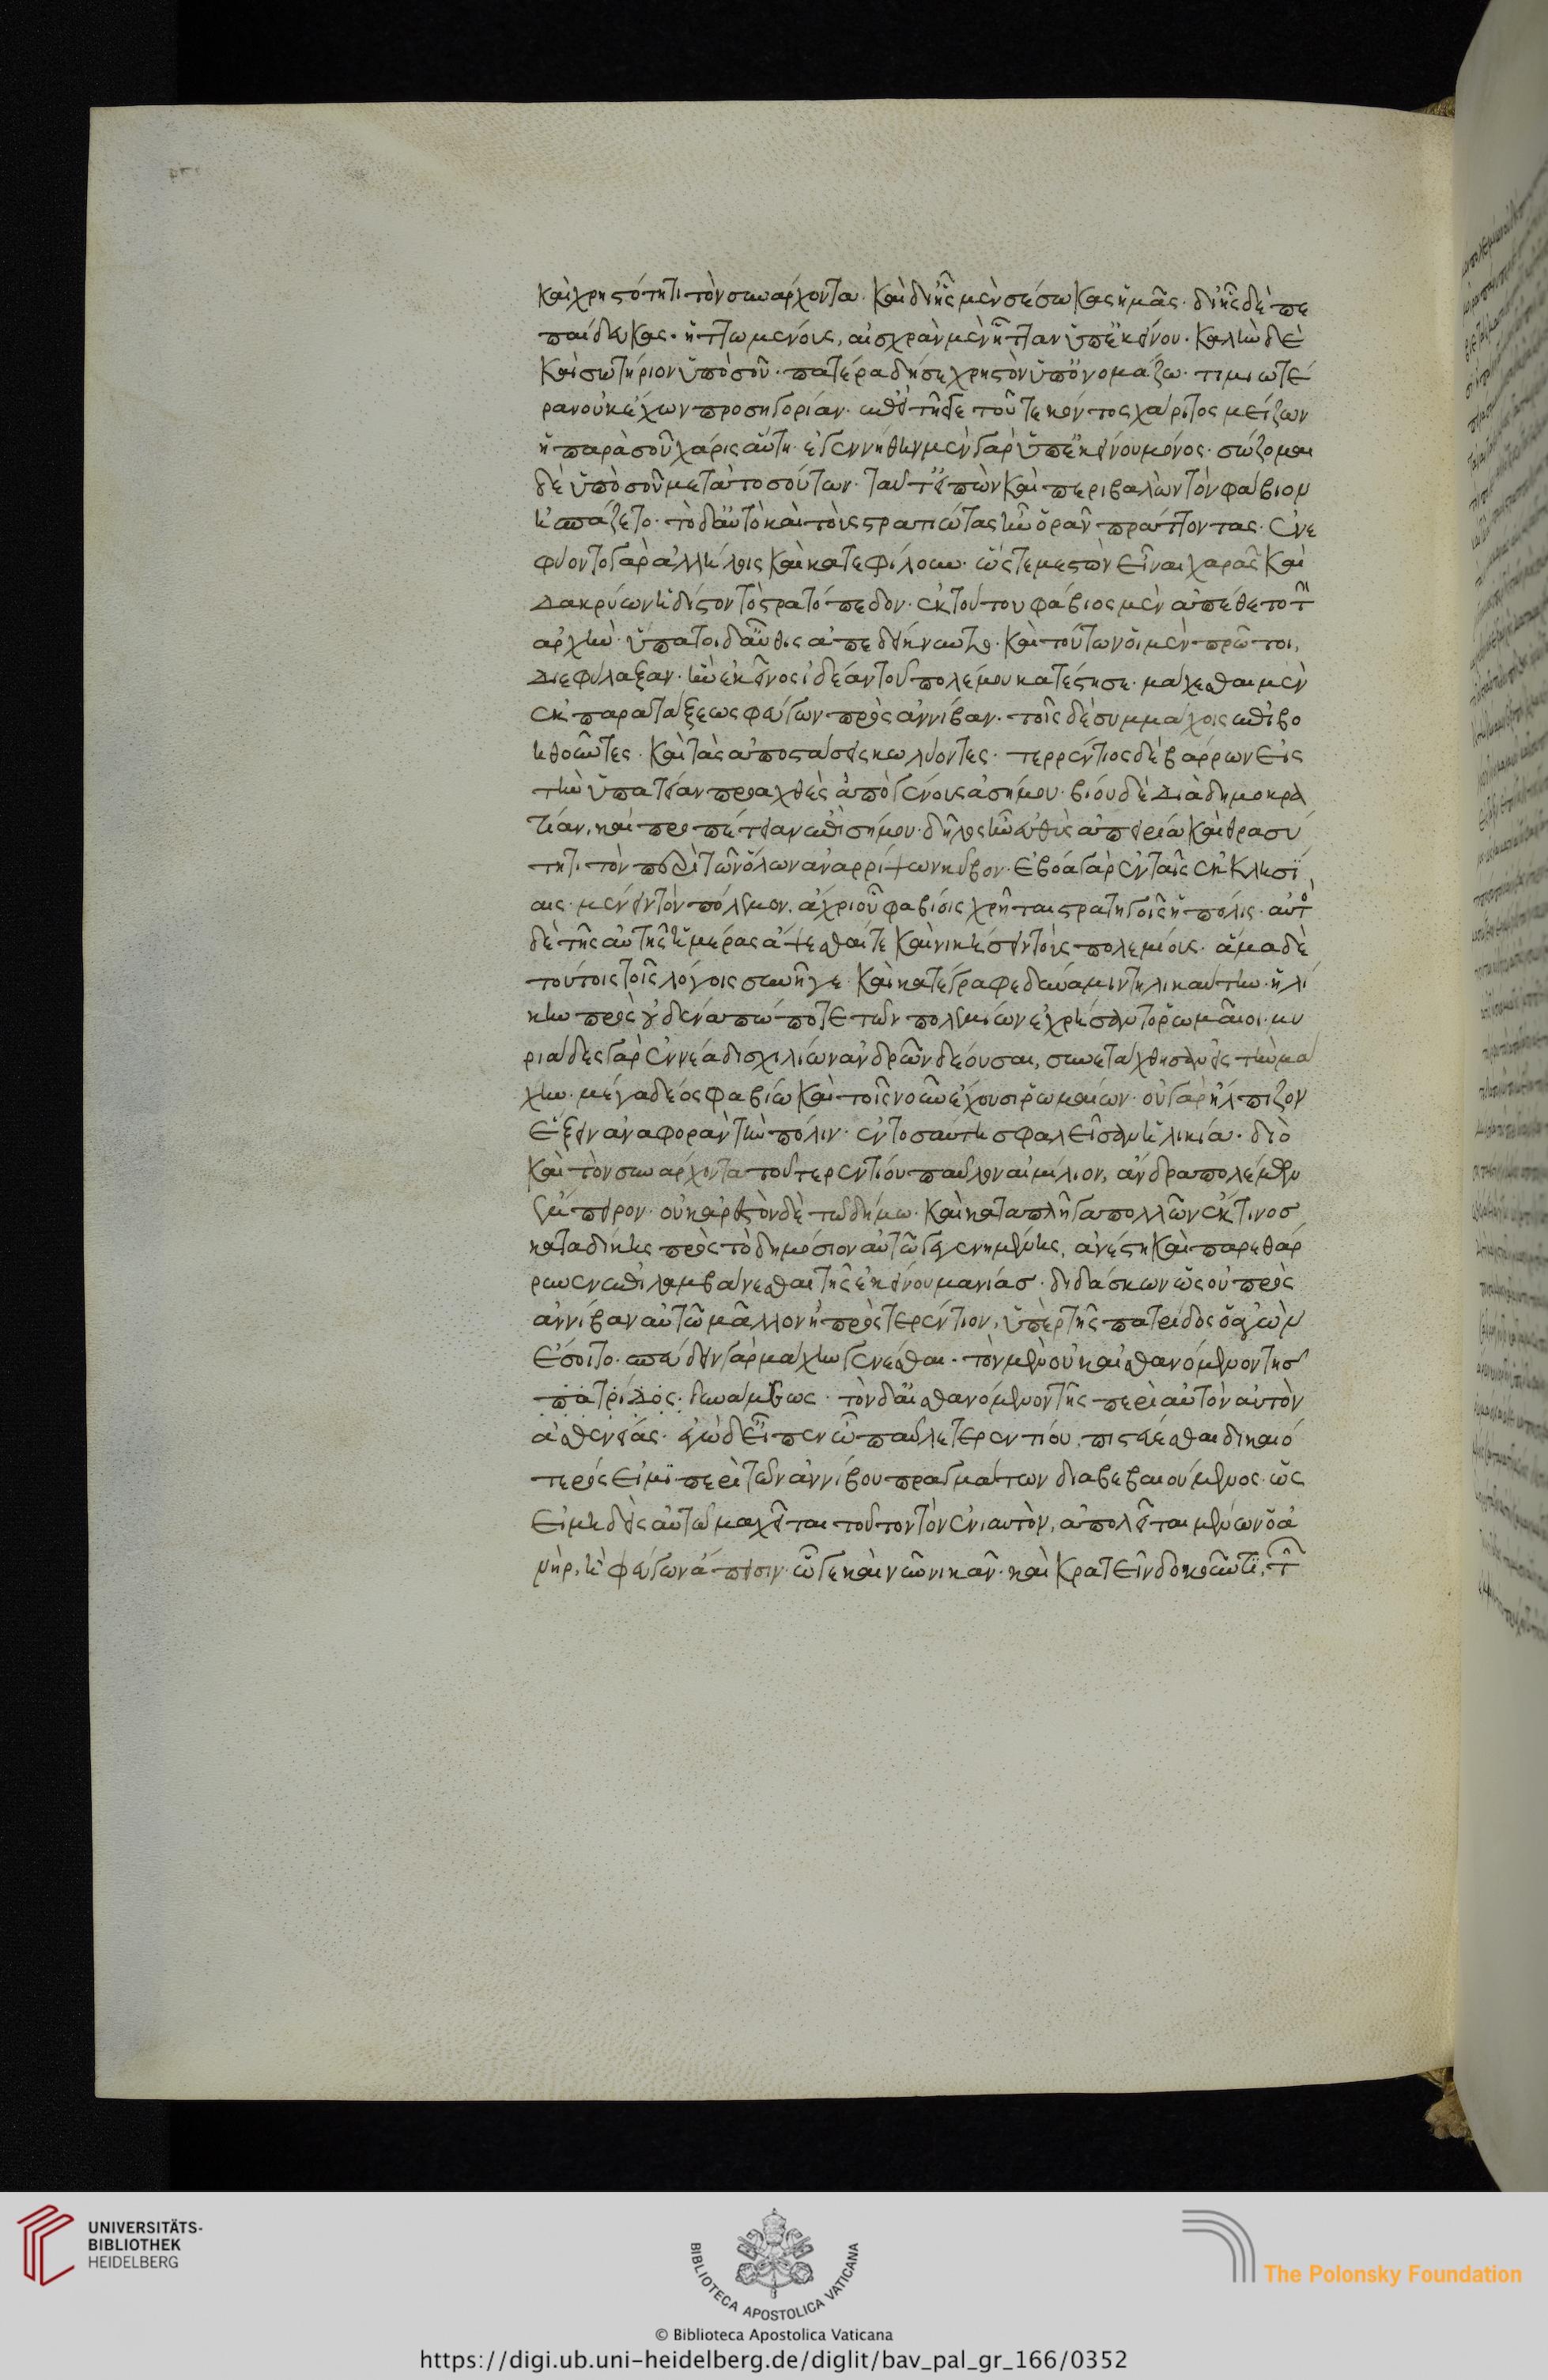 καὶ χρηστότητι τὸν συνάρχοντα. καὶ δι' ἧς μὲν σέσωκας ἡμᾶς. δι' ἧς δὲ πε
παίδευκας. ἡττωμένους, αἰσχρὰν μὲν ἧτταν ὑπ' ἐκείνου. καλὴν δὲ
καὶ σωτήριον ὑπὸ σοῦ. πατέρα δή σε χρηστὸν ὑπονομάζω. τιμιωτέ
ραν οὐκ ἔχων προσηγορίαν. ἐπεὶ τῆς γε τοῦ τεκόντος χάριτος μείζων
ἡ παρὰ σοῦ χάρις αὕτη. ἐγεννήθην μὲν γὰρ ὑπ' ἐκείνου μόνος. σώζομαι
δὲ ὑπὸ σοῦ μετὰ τοσούτων. ταῦτ' εἰπὼν καὶ περιβαλὼν τὸν φάβιον
ἠσπάζετο. τὸ δ' αὐτὸ καὶ τοὺς στρατιώτας ἦν ὁρᾶν πράττοντας. ἐνε
φύοντο γὰρ ἀλλήλοις καὶ κατεφίλουν. ὥστε μεστὸν εἶναι χαρᾶς καὶ
δακρύων ἡδίστον τὸ στρατόπεδον. ἐκ τούτου φάβιος μὲν ἀπέθετο τὴν
ἀρχήν. ὕπατοι δ' αὖθις ἀπεδείκνυντο. καὶ τούτων οἱ μὲν πρῶτοι,
διεφύλαξαν. ἣν ἐκεῖνος ἰδέαν τοῦ πολέμου κατέστησε. μάχεσθαι μὲν
ἐκ παρατάξεως φεύγων πρὸς ἀννίβαν. τοῖς δὲ συμμάχοις ἐπιβο
ηθοῦντες. καὶ τὰς ἀποστάσεις κωλύοντες. τερρέντιος δὲ βάρρων εἰς
τὴν ὑπατείαν προαχθεὶς ἀπὸ γένους ἀσήμου. βίου δὲ διὰ δημοκρα
τίαν, καὶ προπέτειαν ἐπισήμου. δῆλος ἦν εὐθὺς ἀπειρίᾳ καὶ θρασύ
τητι τὸν περὶ τῶν ὅλων ἀναρρίψων κύβον. ἐβόα γὰρ ἐν ταῖς ἐκκλησί
αις. μένειν τὸν πόλεμον, ἄχρι οὗ φαβίοις χρῆται στρατηγοῖς ἡ πόλις. αὐτὸς
δὲ τῆς αὐτῆς ἡμέρας ὄψεσθαί τε καὶ νικήσειν τοὺς πολεμίους. ἅμα δὲ
τούτοις τοῖς λόγοις συνῆγε. καὶ κατέγραφε δύναμιν τηλικαύτην. ἡλί
κην πρὸς οὐδένα πώποτε τῶν πολεμίων ἐχρήσαντο ῥωμαῖοι. μυ
ριάδες γὰρ ἐννέα δισχιλίων ἀνδρῶν δέουσαι, συνετάχθησαν εἰς τὴν μά
χην. μέγα δέος φαβίῳ καὶ τοῖς νοῦν ἔχουσι ῥωμαίων. οὐ γὰρ ἤλπιζον
ἕξειν ἀναφορὰν τὴν πόλιν. ἐν τοσαύτη σφαλεῖσαν ἡλικία. διὸ
καὶ τὸν συνάρχοντα τοῦ τερεντίου παῦλον αἰμίλιον, ἄνδρα πολέμων
ἔμπειρον. οὐκ ἀρεστὸν δὲ τῷ δήμω. καὶ καταπλῆγα πολλῶν ἔκ τινος
καταδίκης πρὸς τὸ δημόσιον αὐτῶ γεγενημένης, ἀνίστη καὶ παρεθάρ
ρυνεν ἐπιλαμβάνεσθαι τῆς ἐκείνου μανίας. διδάσκων ὡς οὐ πρὸς
ἀννίβαν αὐτῶ μᾶλλον ἢ πρὸς τερέντιον, ὑπὲρ τῆς πατρίδος ὁ ἀγὼν
ἔσοιτο. σπεύδειν γὰρ μάχην γενέσθαι. τὸν μὲν οὐκ αἰσθανόμενον τῆς
πατρίδος. δυνάμεως. τὸν δ' αἰσθανόμενον τῆς περὶ αὐτὸν αὐτὸν
ἀσθενείας. ἐγὼ δ' εἶπεν ὦ παῦλε τερεντίου, πιστεύεσθαι δικαιό
τερός εἰμι περὶ τῶν ἀννίβου πραγμάτων διαβεβαιούμενος. ὡς
εἰ μηδεὶς αὐτῶ μαχεῖται τοῦτον τὸν ἐνιαυτὸν, ἀπολεῖται μένων ὁ ἀ
νὴρ, ἢ φεύγων ἄπεισιν. ὧ γε καὶ νῦν νικᾶν. καὶ κρατεῖν δοκοῦντι, τῶν
© Biblioteca Apostolica Vaticana
UNIVERSITÄTS-
BIBLIOTHEK
HEIDELBERG
BIBLIOTECA APOSTOLICA VATICANA
The Polonsky Foundation
https://digi.ub.uni-heidelberg.de/diglit/bav_pal_gr_166/0352